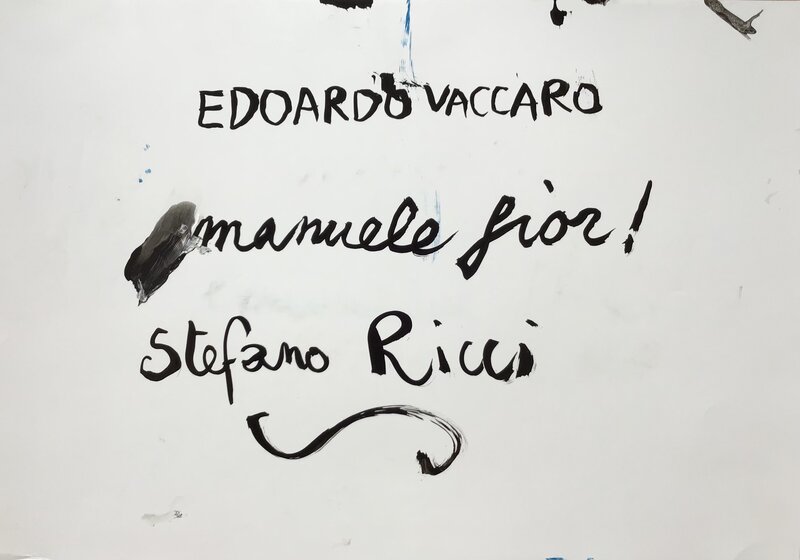 EDOARDO VACCARO
manuele fior!
Stefano Ricci